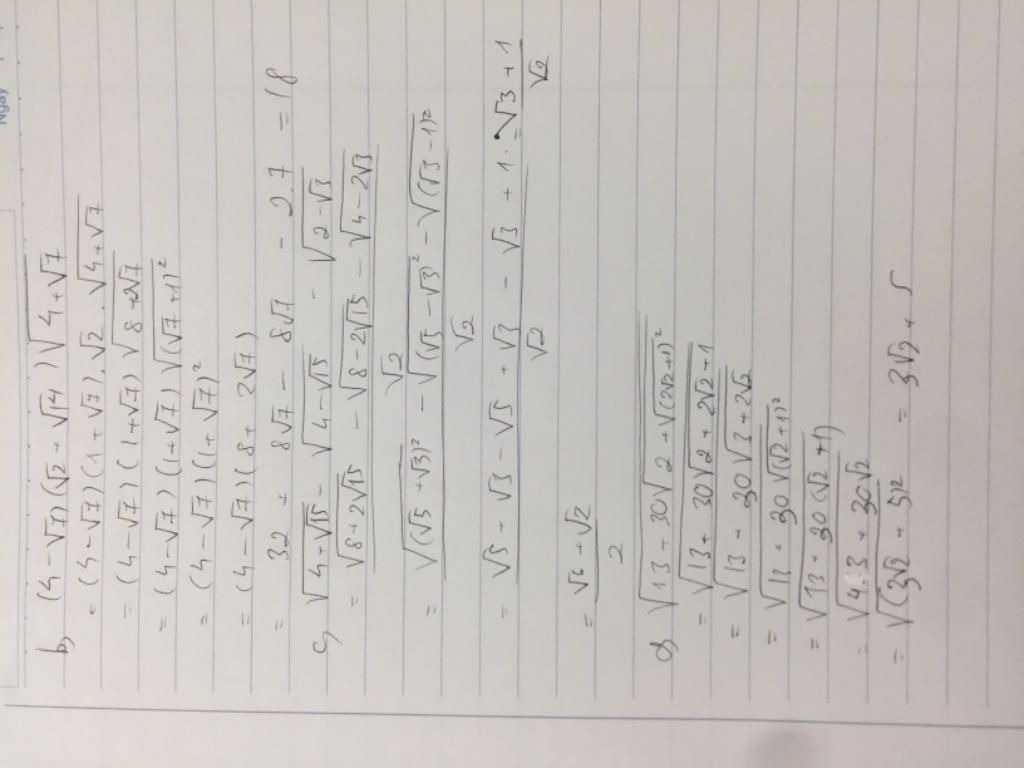 Ngày
b, (4 - √7)(√2 + √14)√(4 + √7)
= (4 - √7)(1 + √7).√2.√(4 + √7)
= (4 - √7)(1 + √7)√(8 + 2√7)
= (4 - √7)(1 + √7)√((√7 + 1)²)
= (4 - √7)(1 + √7)²
= (4 - √7)(8 + 2√7)
= 32 + 8√7 - 8√7 - 2.7 = 18
c, √(4 + √15) - √(4 - √15) - √(2 - √3)
= (√(8 + 2√15) - √(8 - 2√15) - √(4 - 2√3))/√2
= (√((√5 + √3)²) - √((√5 - √3)²) - √((√3 - 1)²))/√2
= (√5 + √3 - √5 + √3 - √3 + 1)/√2 = (√3 + 1)/√2
= (√6 + √2)/2
d, √(13 + 30√(2 + √((2√2 + 1)²)))
= √(13 + 30√(2 + 2√2 + 1))
= √(13 + 30√(3 + 2√2))
= √(13 + 30√((√2 + 1)²))
= √(13 + 30(√2 + 1))
= √(43 + 30√2)
= √((3√2 + 5)²) = 3√2 + 5